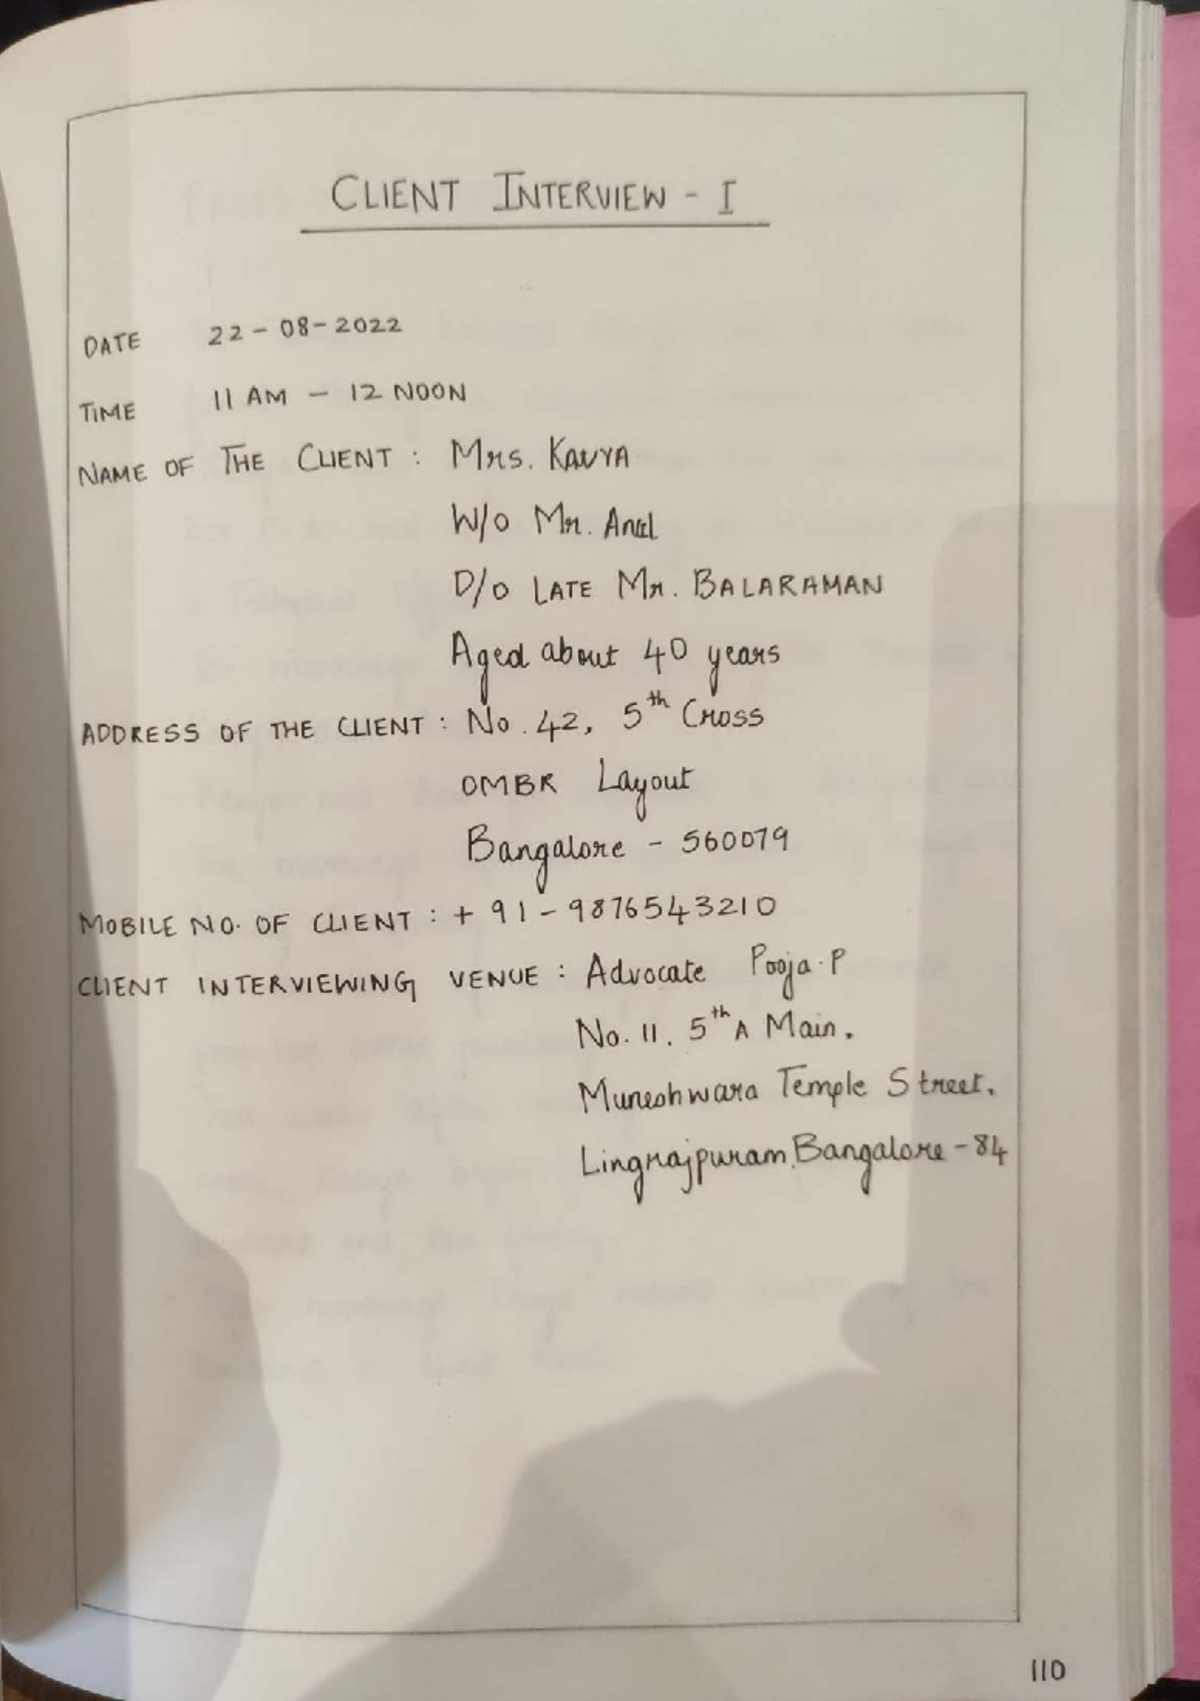 CLIENT INTERVIEW - I
DATE 22-08-2022
TIME 11 AM - 12 NOON
NAME OF THE CLIENT : Mrs. KAVYA
W/o Mr. Anil
D/o LATE Mr. BALARAMAN
Aged about 40 years
ADDRESS OF THE CLIENT : No. 42, 5th Cross
OMBR Layout
Bangalore - 560079
MOBILE NO. OF CLIENT : + 91 - 9876543210
CLIENT INTERVIEWING VENUE : Advocate Pooja.P
No. 11, 5th A Main.
Muneshwara Temple Street.
Lingrajpuram, Bangalore - 84
110